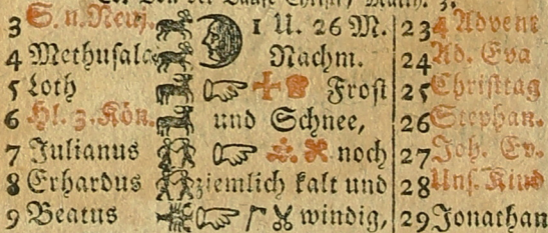 3 S. n. Neuj. 1 U. 26 M. 23 4 Advent
4 Methusale Nachm. 24 Ad. Eva
5 Loth Frost 25 Christtag
6 Hl. 3. Kön. und Schnee, 26 Stephan.
7 Julianus noch 27 Joh. Ev.
8 Erhardus ziemlich kalt und 28 Uns. Kind
9 Beatus windig, 29 Jonathan